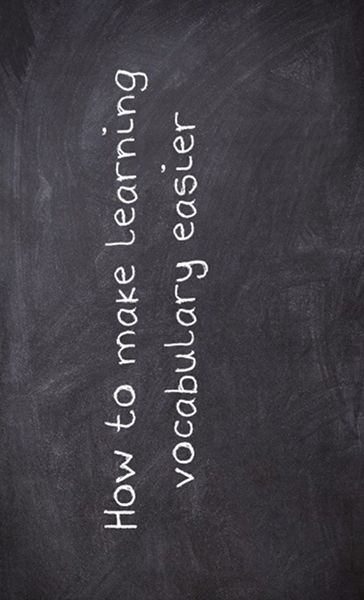 How to make learning
vocabulary easier